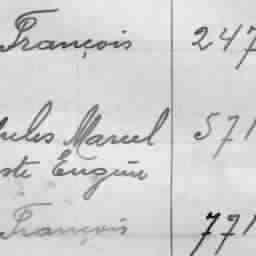 François 247
Jules Marcel 571
ste Eugène
François 771